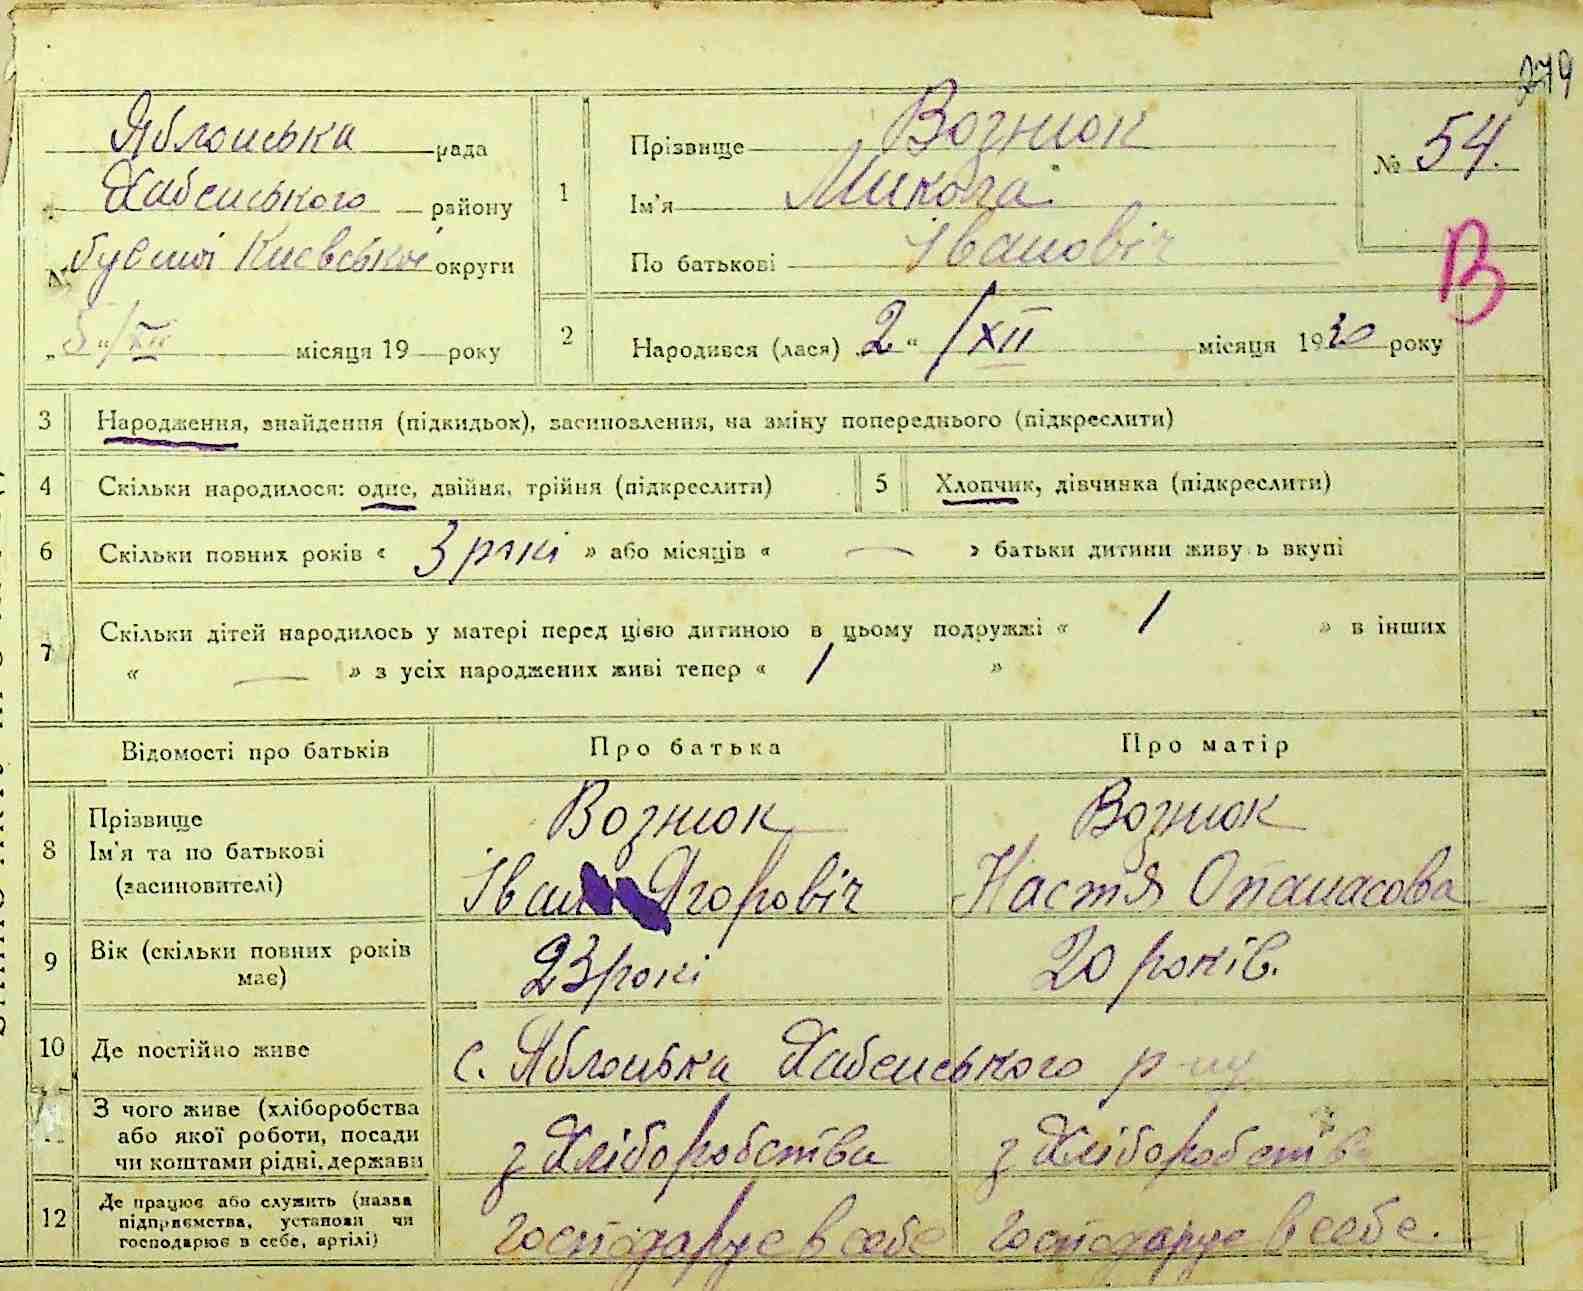 279
Яблонська рада
Хабенського району
бувшої Києвської округи
„5“/XII місяця 19 року
1
Прізвище Вознюк
Ім'я Микола
По батькові Івановіч
№ 54.
В
2
Народився (лася) 2 “ /XII місяця 1930 року
3 Народження, знайдення (підкидьок), засиновлення, на зміну попереднього (підкреслити)
4 Скільки народилося: одне, двійня, трійня (підкреслити) 5 Хлопчик, дівчинка (підкреслити)
6 Скільки повних років « 3 рокі » або місяців « — » батьки дитини живу ь вкупі
7 Скільки дітей народилось у матері перед цією дитиною в цьому подружжі « 1 » в інших
« — » з усіх народжених живі тепер « 1 »
Відомості про батьків Про батька Про матір
8 Прізвище Вознюк Вознюк
Ім'я та по батькові Іван Ягоровіч Настя Опанасовва
(засиновителі)
9 Вік (скільки повних років має) 23 рокі 20 років.
10 Де постійно живе с. Яблонька Хабенського р-ну
З чого живе (хліборобства
або якої роботи, посади з Хліборобства з Хліборобства
чи коштами рідні, держави
12 Де працює або служить (назва
підприємства, установи чи господарує в себе господарує в себе.
господарює в себе, артілі)